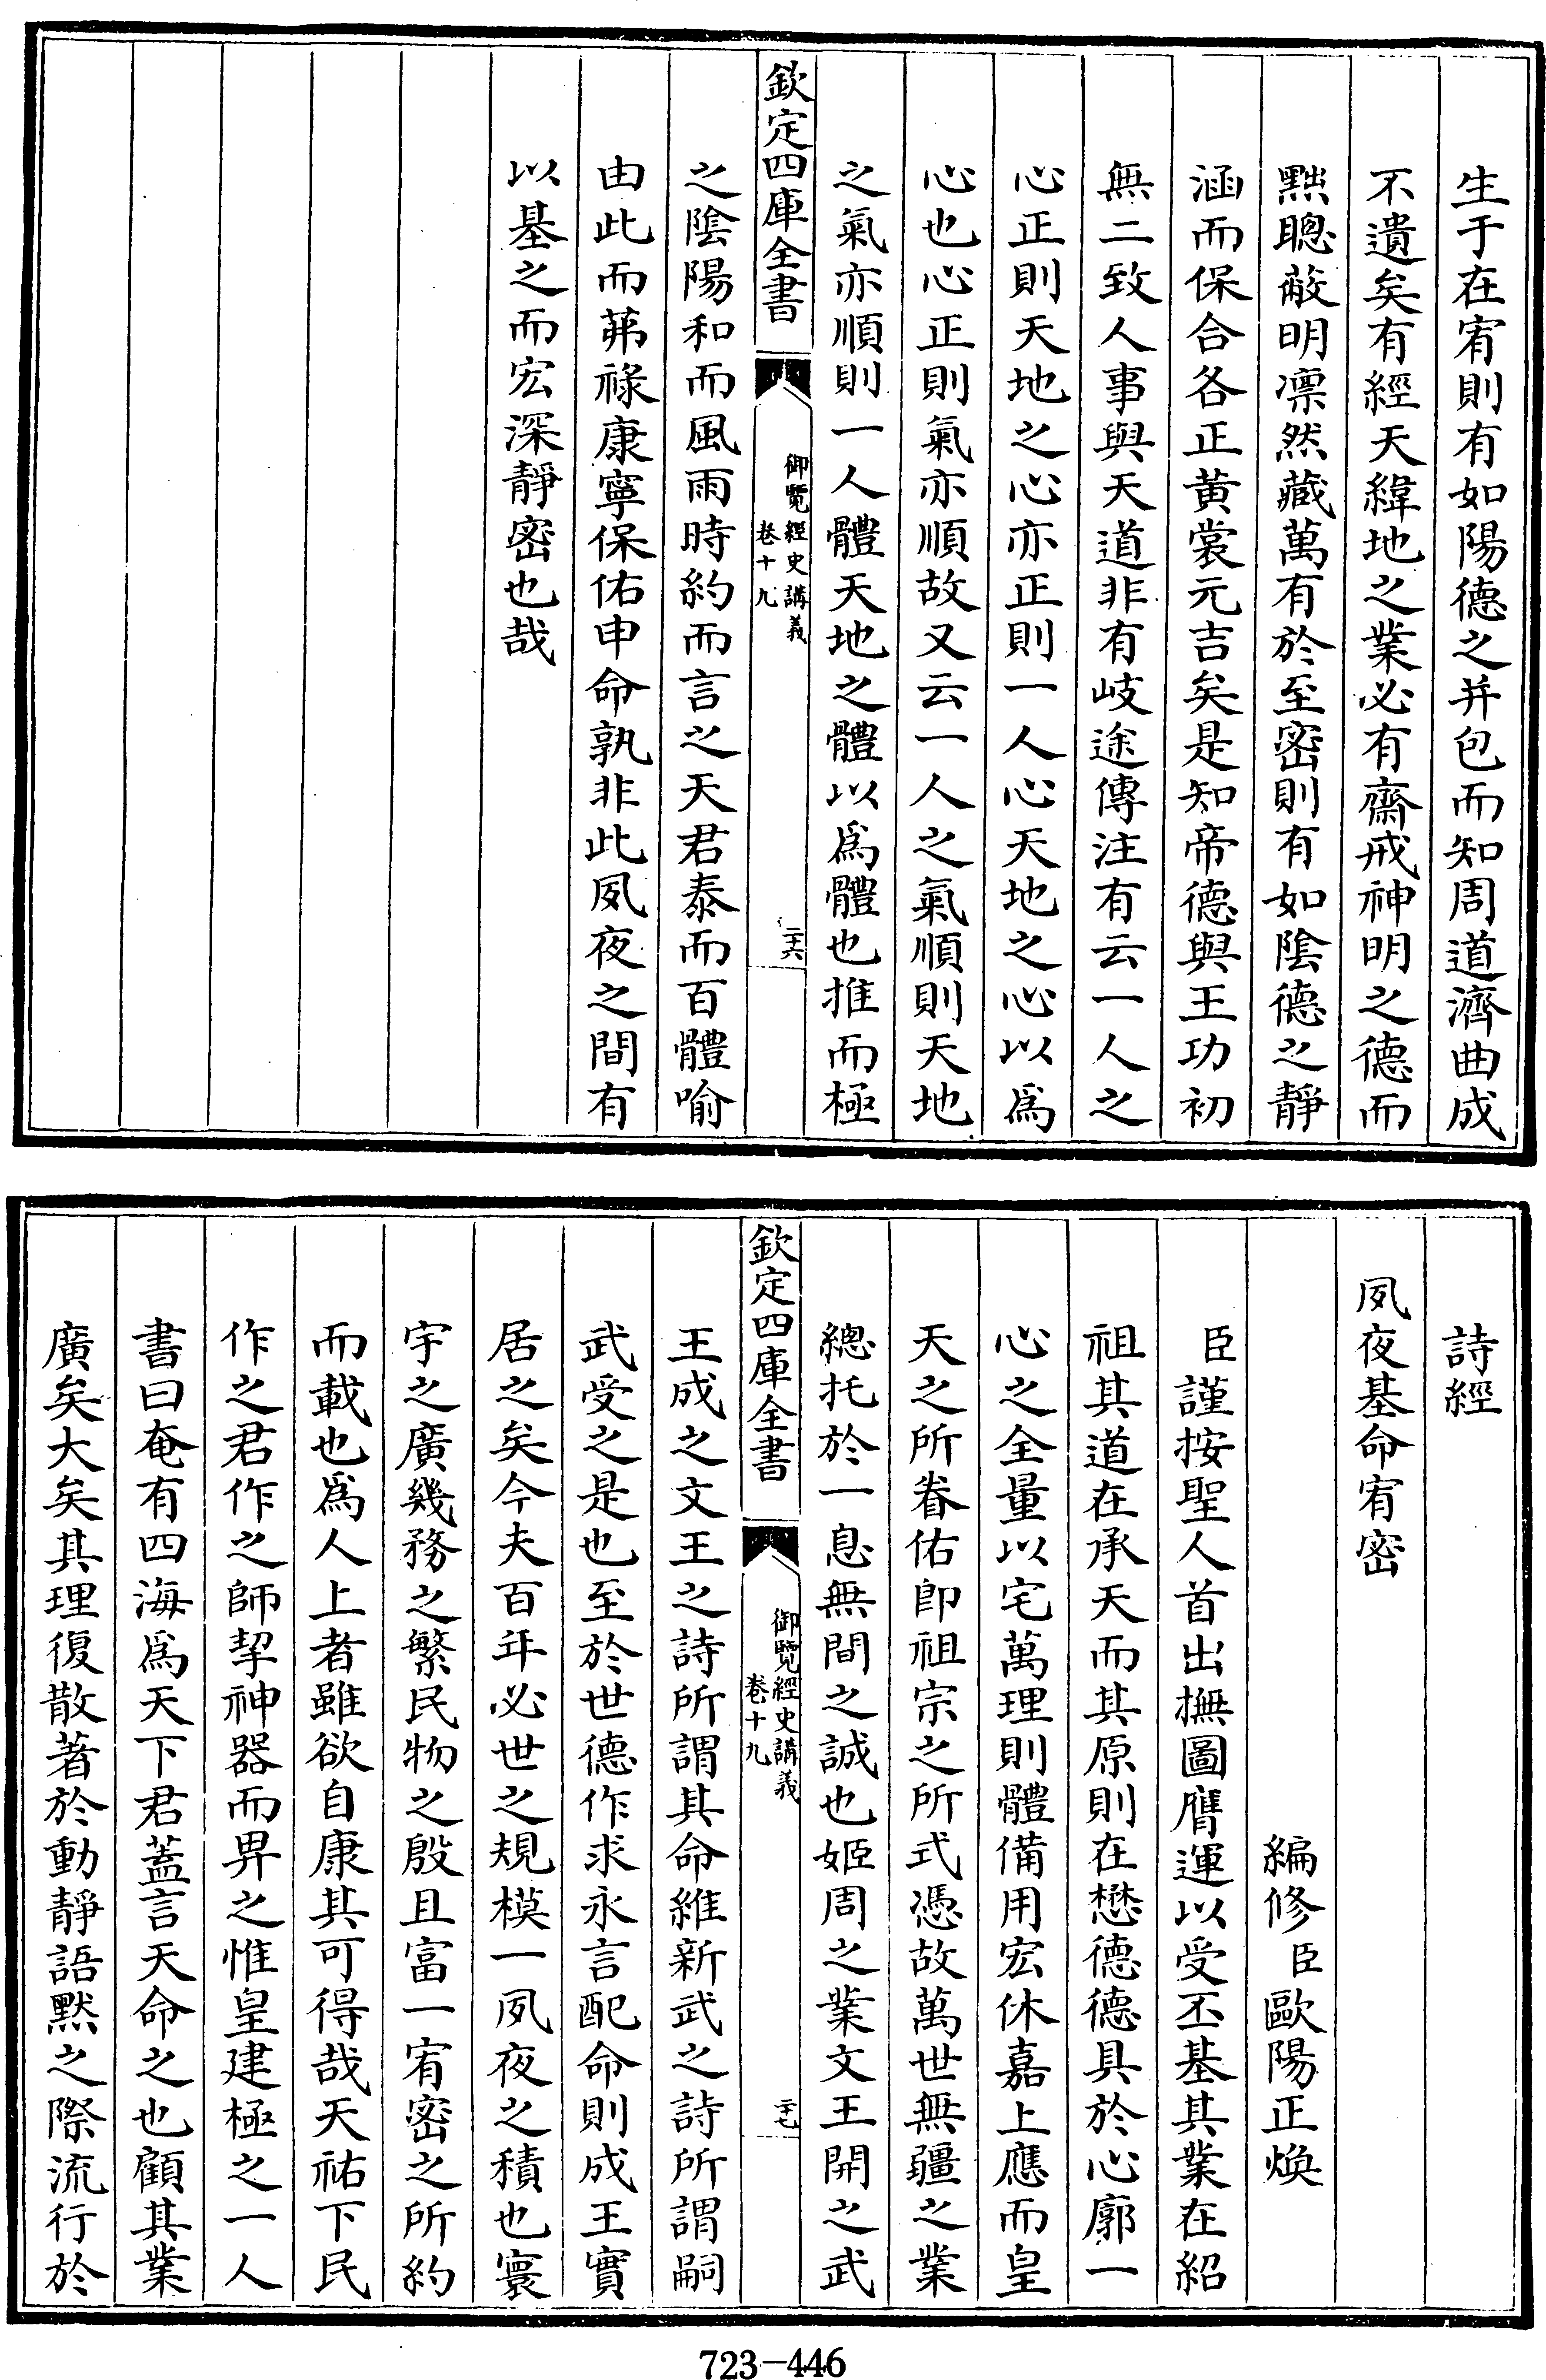 生于在宥則有如陽德之并包而知周道濟曲成
不遺矣有經天緯地之業必有齋戒神明之德而
黜聰蔽明凛然藏萬有於至密則有如陰德之靜
涵而保合各正黄裳元吉矣是知帝德與王功初
無二致人事與天道非有岐途傳注有云一人之
心正則天地之心亦正則一人心天地之心以爲
心也心正則氣亦順故又云一人之氣順則天地
之氣亦順則一人體天地之體以爲體也推而極
欽定四庫全書
御覽經史講義
卷十九
二十六
之陰陽和而風雨時約而言之天君泰而百體喻
由此而茀祿康寧保佑申命孰非此夙夜之間有
以基之而宏深靜密也哉
詩經
夙夜基命宥密
編修臣歐陽正煥
臣謹按聖人首出撫圖膺運以受丕基其業在紹
祖其道在承天而其原則在懋德德具於心廓一
心之全量以宅萬理則體備用宏休嘉上應而皇
天之所眷佑卽祖宗之所式憑故萬世無疆之業
總托於一息無間之誠也姬周之業文王開之武
欽定四庫全書
御覽經史講義
卷十九
二十七
王成之文王之詩所謂其命維新武之詩所謂嗣
武受之是也至於世德作求永言配命則成王實
居之矣今夫百年必世之規模一夙夜之積也寰
宇之廣幾務之繁民物之殷且富一宥密之所約
而載也爲人上者雖欲自康其可得哉天祐下民
作之君作之師挈神器而畀之惟皇建極之一人
書曰奄有四海爲天下君蓋言天命之也顧其業
廣矣大矣其理復散著於動靜語默之際流行於
723-446